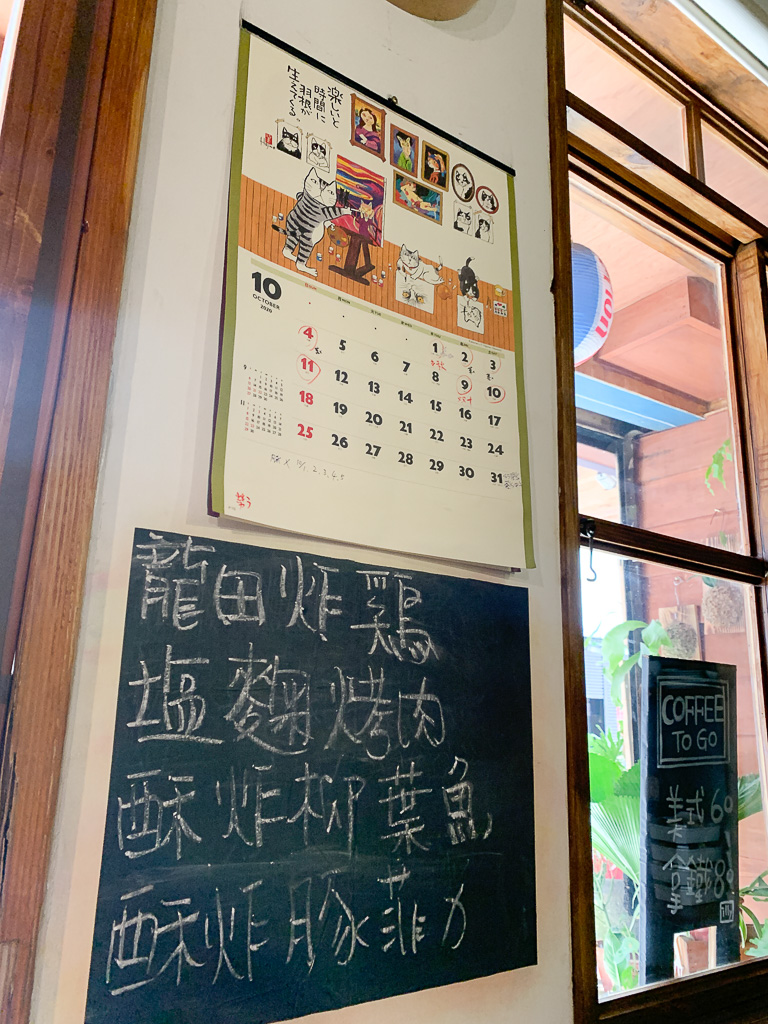 楽しいと
時間に
羽根が
生えてくる。
10
OCTOBER
2020
1 2 3
4 5 6 7 8 9 10
11 12 13 14 15 16 17
18 19 20 21 22 23 24
25 26 27 28 29 30 31
9
11
龍田炸鶏
塩麴烤肉
酥炸柳葉魚
酥炸豚菲力
COFFEE
TO GO
美式60
拿鐵80